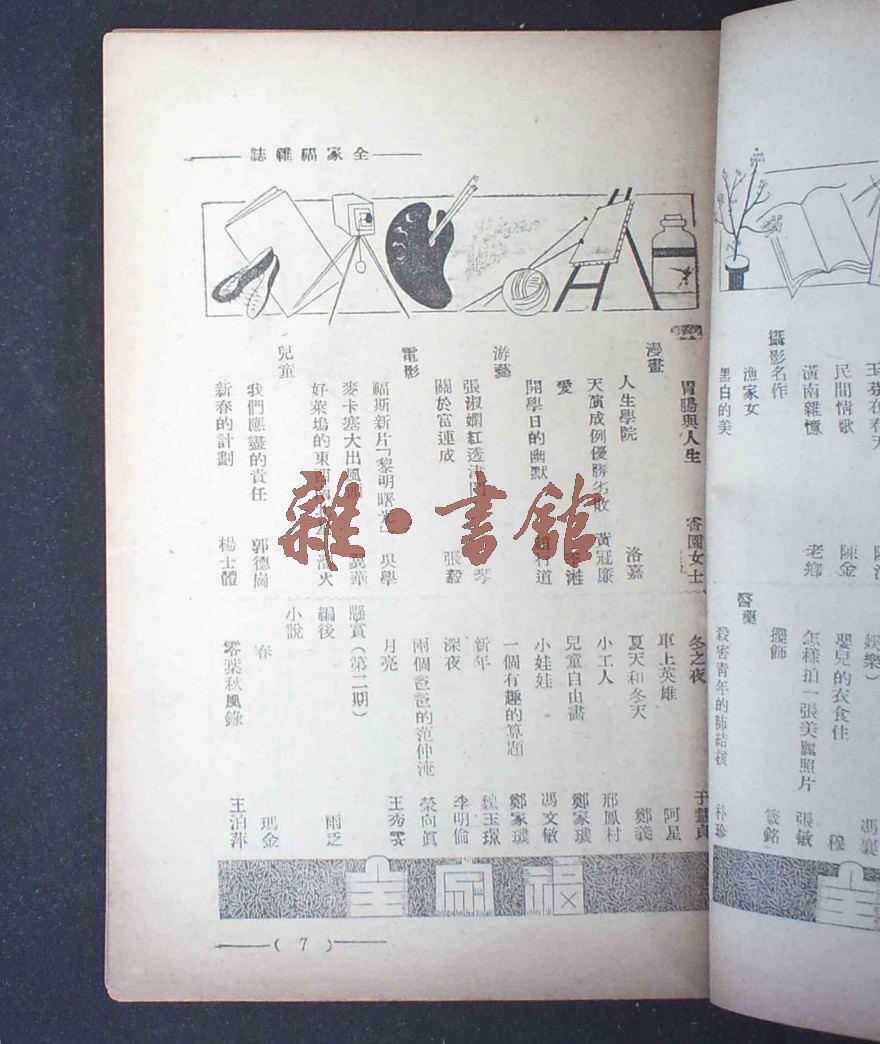 民間情歌 陳金
南雜憶 老鄉
攝影名作
漁家女
黑白的美
娛樂） 馮襄
嬰兒的衣食住 穆
怎樣拍一張美麗照片 張敏
擺飾 銘
醫藥
殺害青年的肺結核 朴珍
全
全家福雜誌
胃腸與人生 香園女士
漫畫
人生學院 洛嘉
天演成例優勝劣敗 黃冠廉
愛
開學日的幽默 道
游藝
張淑嫻紅透津門 琴
關於富連成 張毅
電影
福斯新片「黎明曙光」 吳學
麥卡塞大出風頭 華
好萊塢的東西 火
兒童
我們應盡的責任 郭德崗
新春的計劃 楊士體
冬之夜 于慧貞
車上英雄 阿星
夏天和冬天 鄭義
小工人 邢鳳村
兒童自由畫 鄭家璣
小娃娃 馮文敏
一個有趣的算題 鄭家璣
新年 魏玉璟
深夜 李明倫
兩個爸爸的范仲淹 榮向眞
月亮 王秀雯
懸賞（第二期）
編後 雨
小說
春 瑪金
零葉秋風錄 王泊萍
全家福
（7）
雜·書館